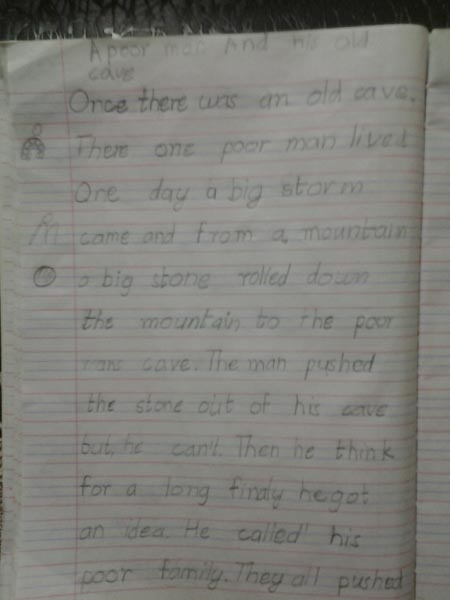 A poor man And his old
cave
Once there was an old cave.
There one poor man lived
One day a big storm
came and from a mountain
a big stone rolled down
the mountain to the poor
mans cave. The man pushed
the stone out of his cave
but, he can't. Then he think
for a long findy he got
an idea. He called his
poor family. They all pushed